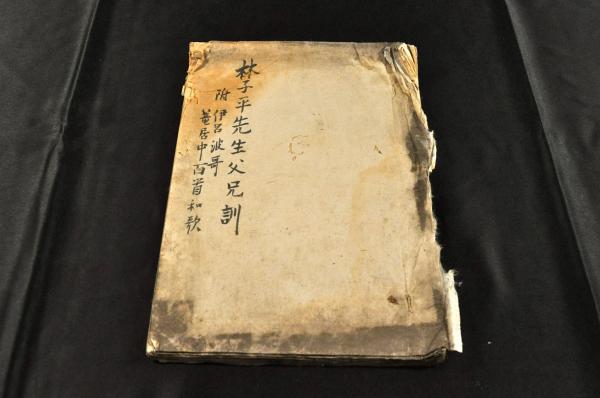 林子平先生父兄訓
附 伊呂波哥
菴居中百首和歌